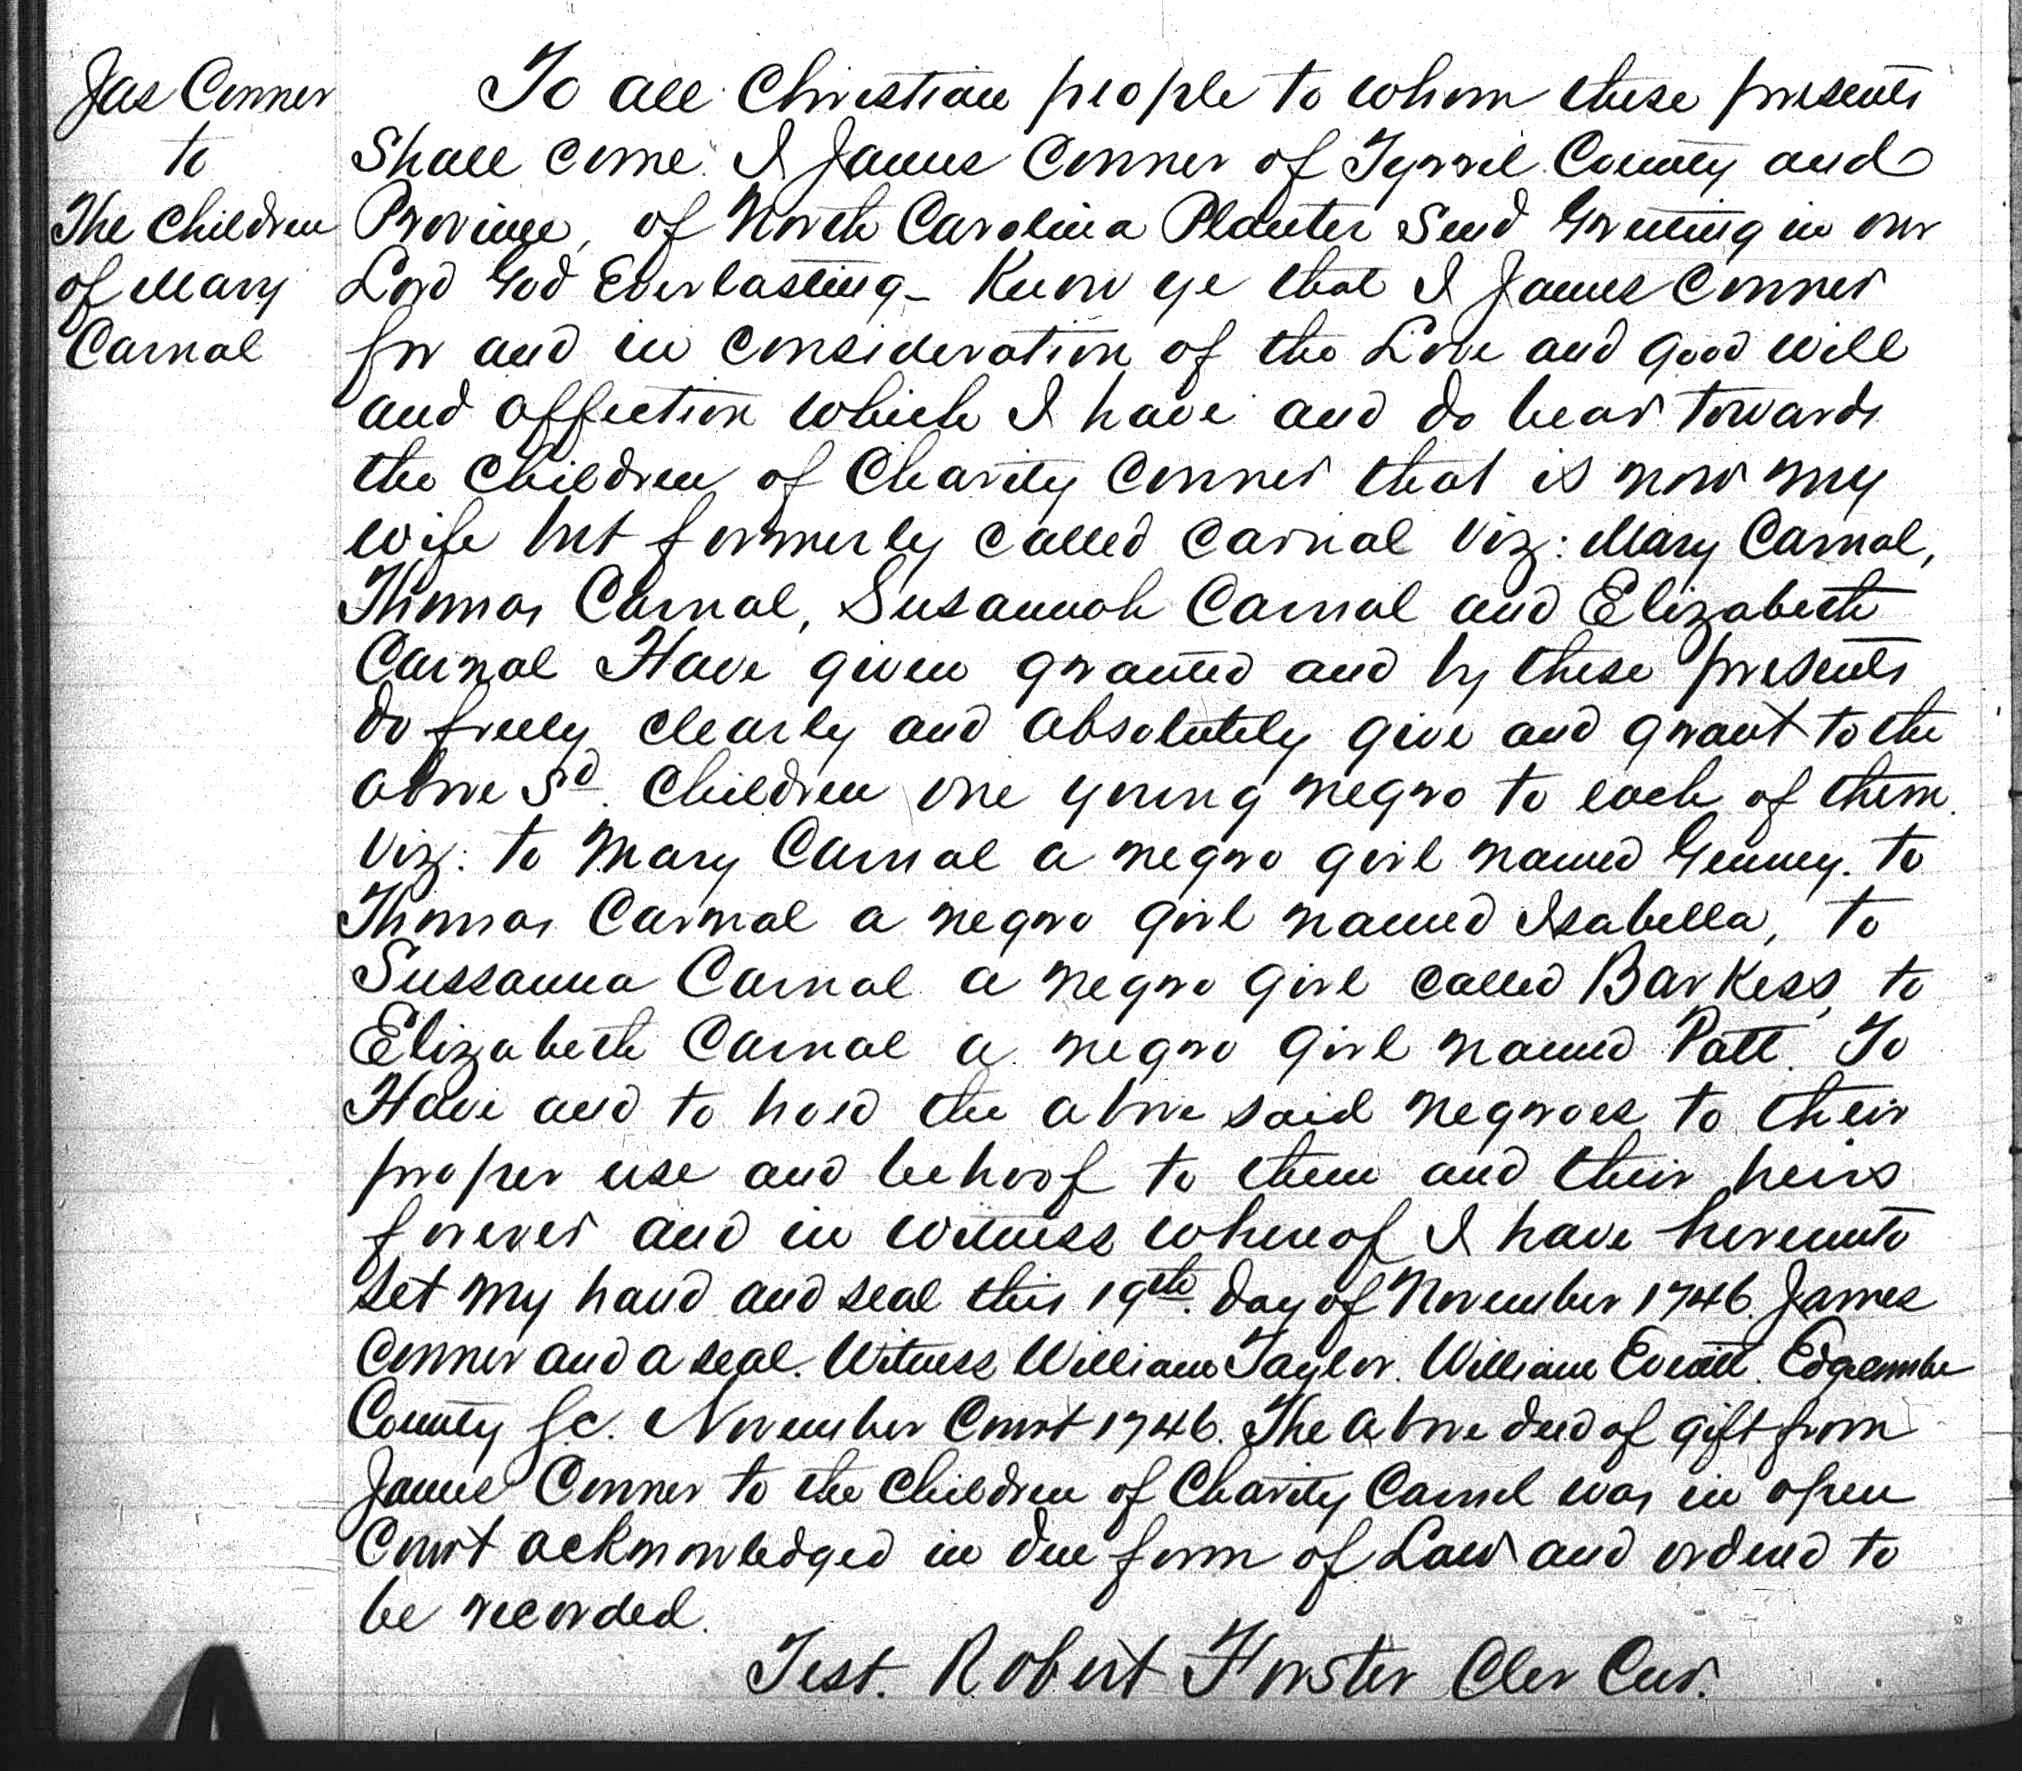 Jas Conner
to
The Children
of Mary
Carnal
To all Christian people to whom these presents
Shall come I James Conner of Tyrrel County and
Province, of North Carolina Planter Send Greeting in our
Lord God Everlasting - Know ye that I James Conner
for and in consideration of the Love and good will
and affection which I have and do bear towards
the Children of Charity Conner that is now my
wife but formerly called Carnal Viz: Mary Carnal,
Thomas Carnal, Susannah Carnal and Elizabeth
Carnal Have given granted and by these presents
do freely clearly and absolutely give and grant to the
above Sd. Children one young negro to each of them
Viz: to Mary Carnal a negro girl named Genney. to
Thomas Carnal a negro girl named Isabella, to
Sussanna Carnal a negro girl called Barkess, to
Elizabeth Carnal a negro girl named Patt. To
Have and to hold the above said negroes to their
proper use and behoof to them and their heirs
forever and in witness whereof I have hereunto
set my hand and seal this 19th. day of November 1746. James
Conner and a seal. Witness William Taylor. William Everitt. Edgecombe
County Sc. November Court 1746. The above deed of gift from
James Conner to the Children of Charity Carnel was in open
Court acknowledged in due form of Law and ordered to
be recorded.
Test. Robert Forster Cler Cur.